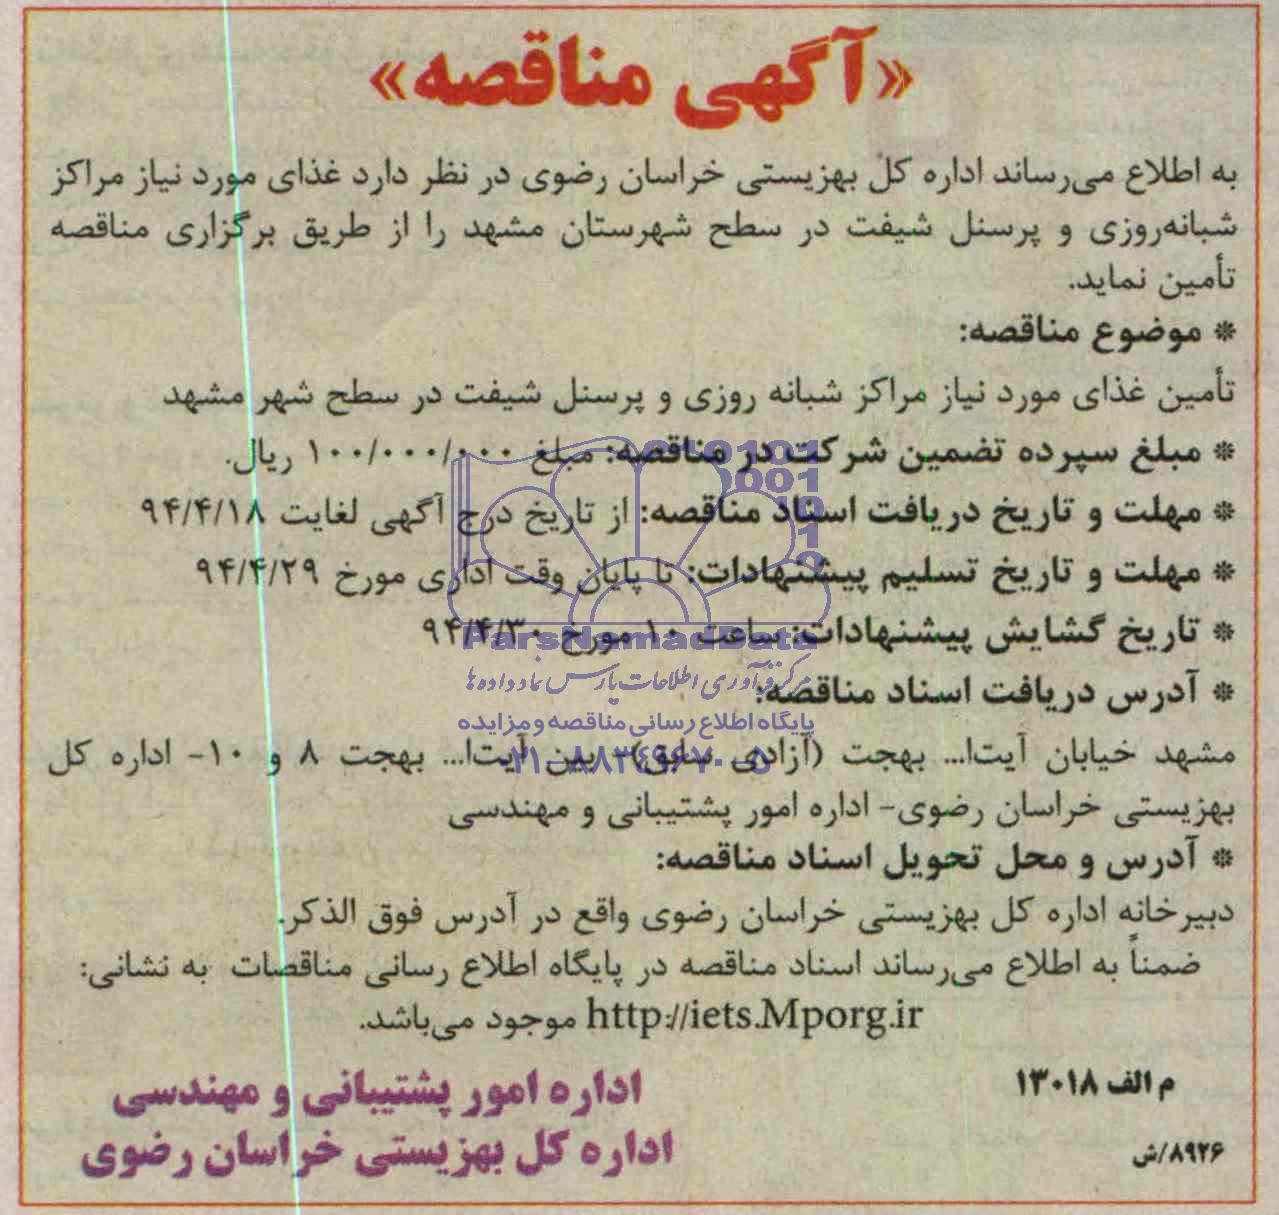 «آگهی مناقصه»
به اطلاع می‌رساند اداره کل بهزیستی خراسان رضوی در نظر دارد غذای مورد نیاز مراکز
شبانه‌روزی و پرسنل شیفت در سطح شهرستان مشهد را از طریق برگزاری مناقصه
تأمین نماید.
* موضوع مناقصه:
تأمین غذای مورد نیاز مراکز شبانه روزی و پرسنل شیفت در سطح شهر مشهد
* مبلغ سپرده تضمین شرکت در مناقصه: مبلغ ۱۰۰/۰۰۰/۰۰۰ ریال.
* مهلت و تاریخ دریافت اسناد مناقصه: از تاریخ درج آگهی لغایت ۹۴/۴/۱۸
* مهلت و تاریخ تسلیم پیشنهادات: تا پایان وقت اداری مورخ ۹۴/۴/۲۹
* تاریخ گشایش پیشنهادات: ساعت ۱۰ مورخ ۹۴/۴/۳۰
ParsNamadData
مرکز فرآوری اطلاعات پارس نماد داده ها
* آدرس دریافت اسناد مناقصه:
پایگاه اطلاع رسانی مناقصه و مزایده
۰۲۱-۸۸۳۴۹۶۷۰-۵
مشهد خیابان آیت‌ا... بهجت (آزادی سابق)- بین آیت‌ا... بهجت ۸ و ۱۰- اداره کل
بهزیستی خراسان رضوی- اداره امور پشتیبانی و مهندسی
* آدرس و محل تحویل اسناد مناقصه:
دبیرخانه اداره کل بهزیستی خراسان رضوی واقع در آدرس فوق الذکر.
ضمناً به اطلاع می‌رساند اسناد مناقصه در پایگاه اطلاع رسانی مناقصات به نشانی:
http://iets.Mporg.ir موجود می‌باشد.
م الف ۱۳۰۱۸
اداره امور پشتیبانی و مهندسی
اداره کل بهزیستی خراسان رضوی
۸۹۲۶/ش